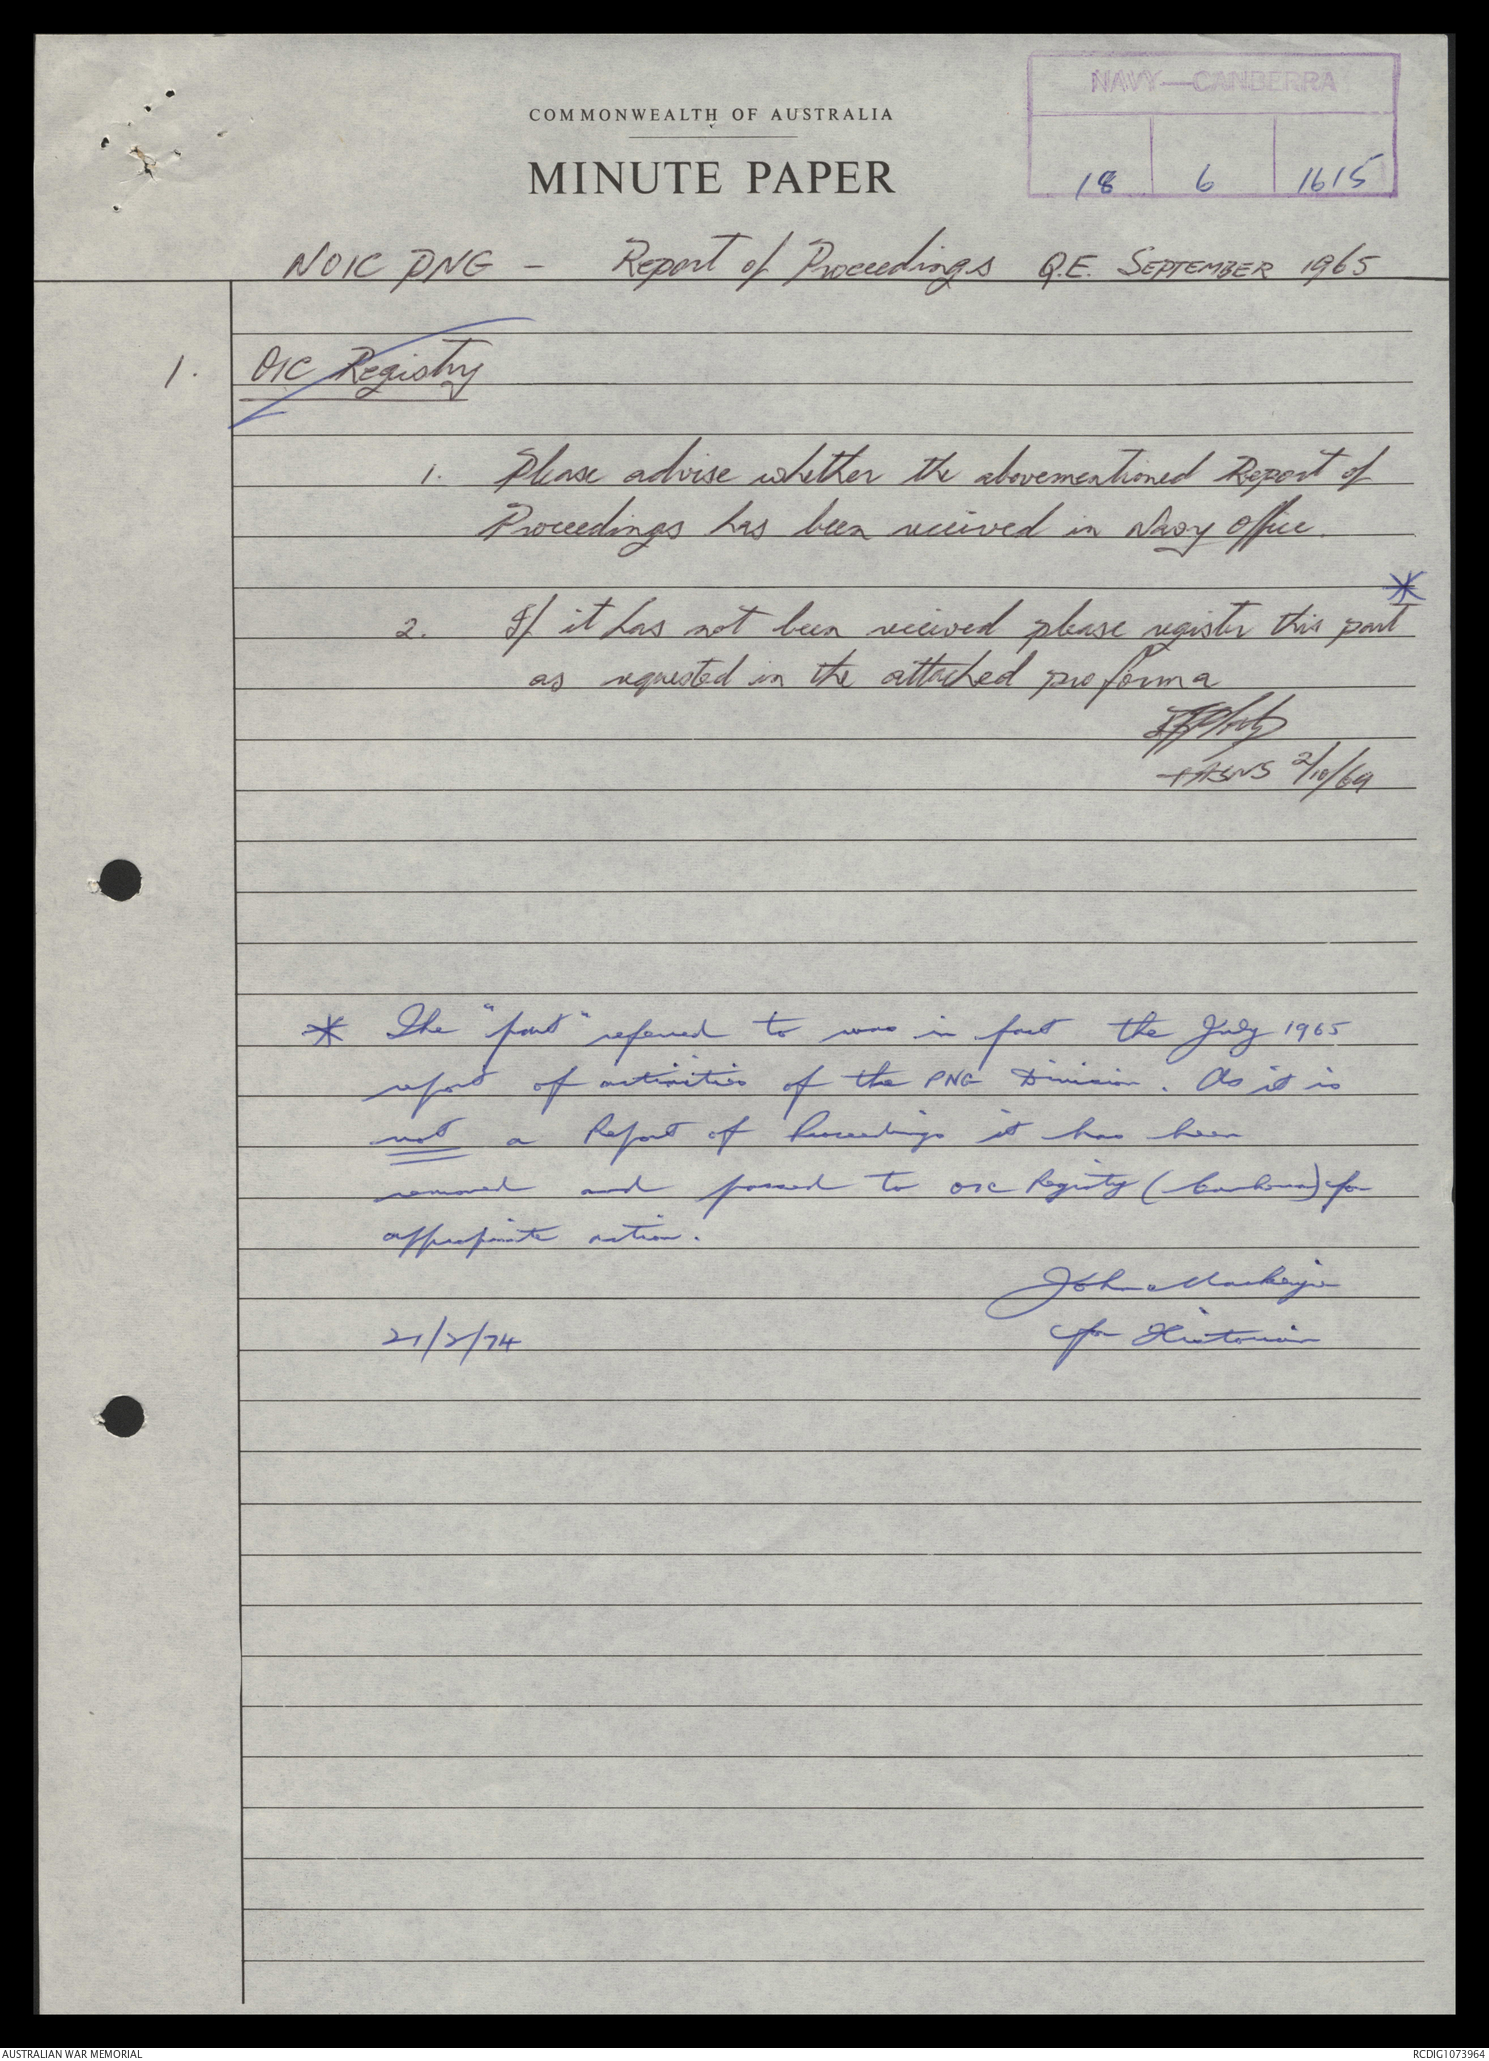 COMMONWEALTH OF AUSTRALIA
MINUTE PAPER
NAVY—CANBERRA
18 6 1615
NOIC PNG - Report of Proceedings Q.E. SEPTEMBER 1965
1. OIC Registry
1. Please advise whether the abovementioned Report of
Proceedings has been received in Navy Office.
*
2. If it has not been received please register this part
as requested in the attached pro forma
2/10/69
* The "part" referred to was in fact the July 1965
report of activities of the PNG Division. As it is
not a Report of Proceedings it has been
removed and passed to OIC Registry (Canberra) for
appropriate action.
John Mackenzie
21/2/74 for Historian
AUSTRALIAN WAR MEMORIAL
RCDIG1073964